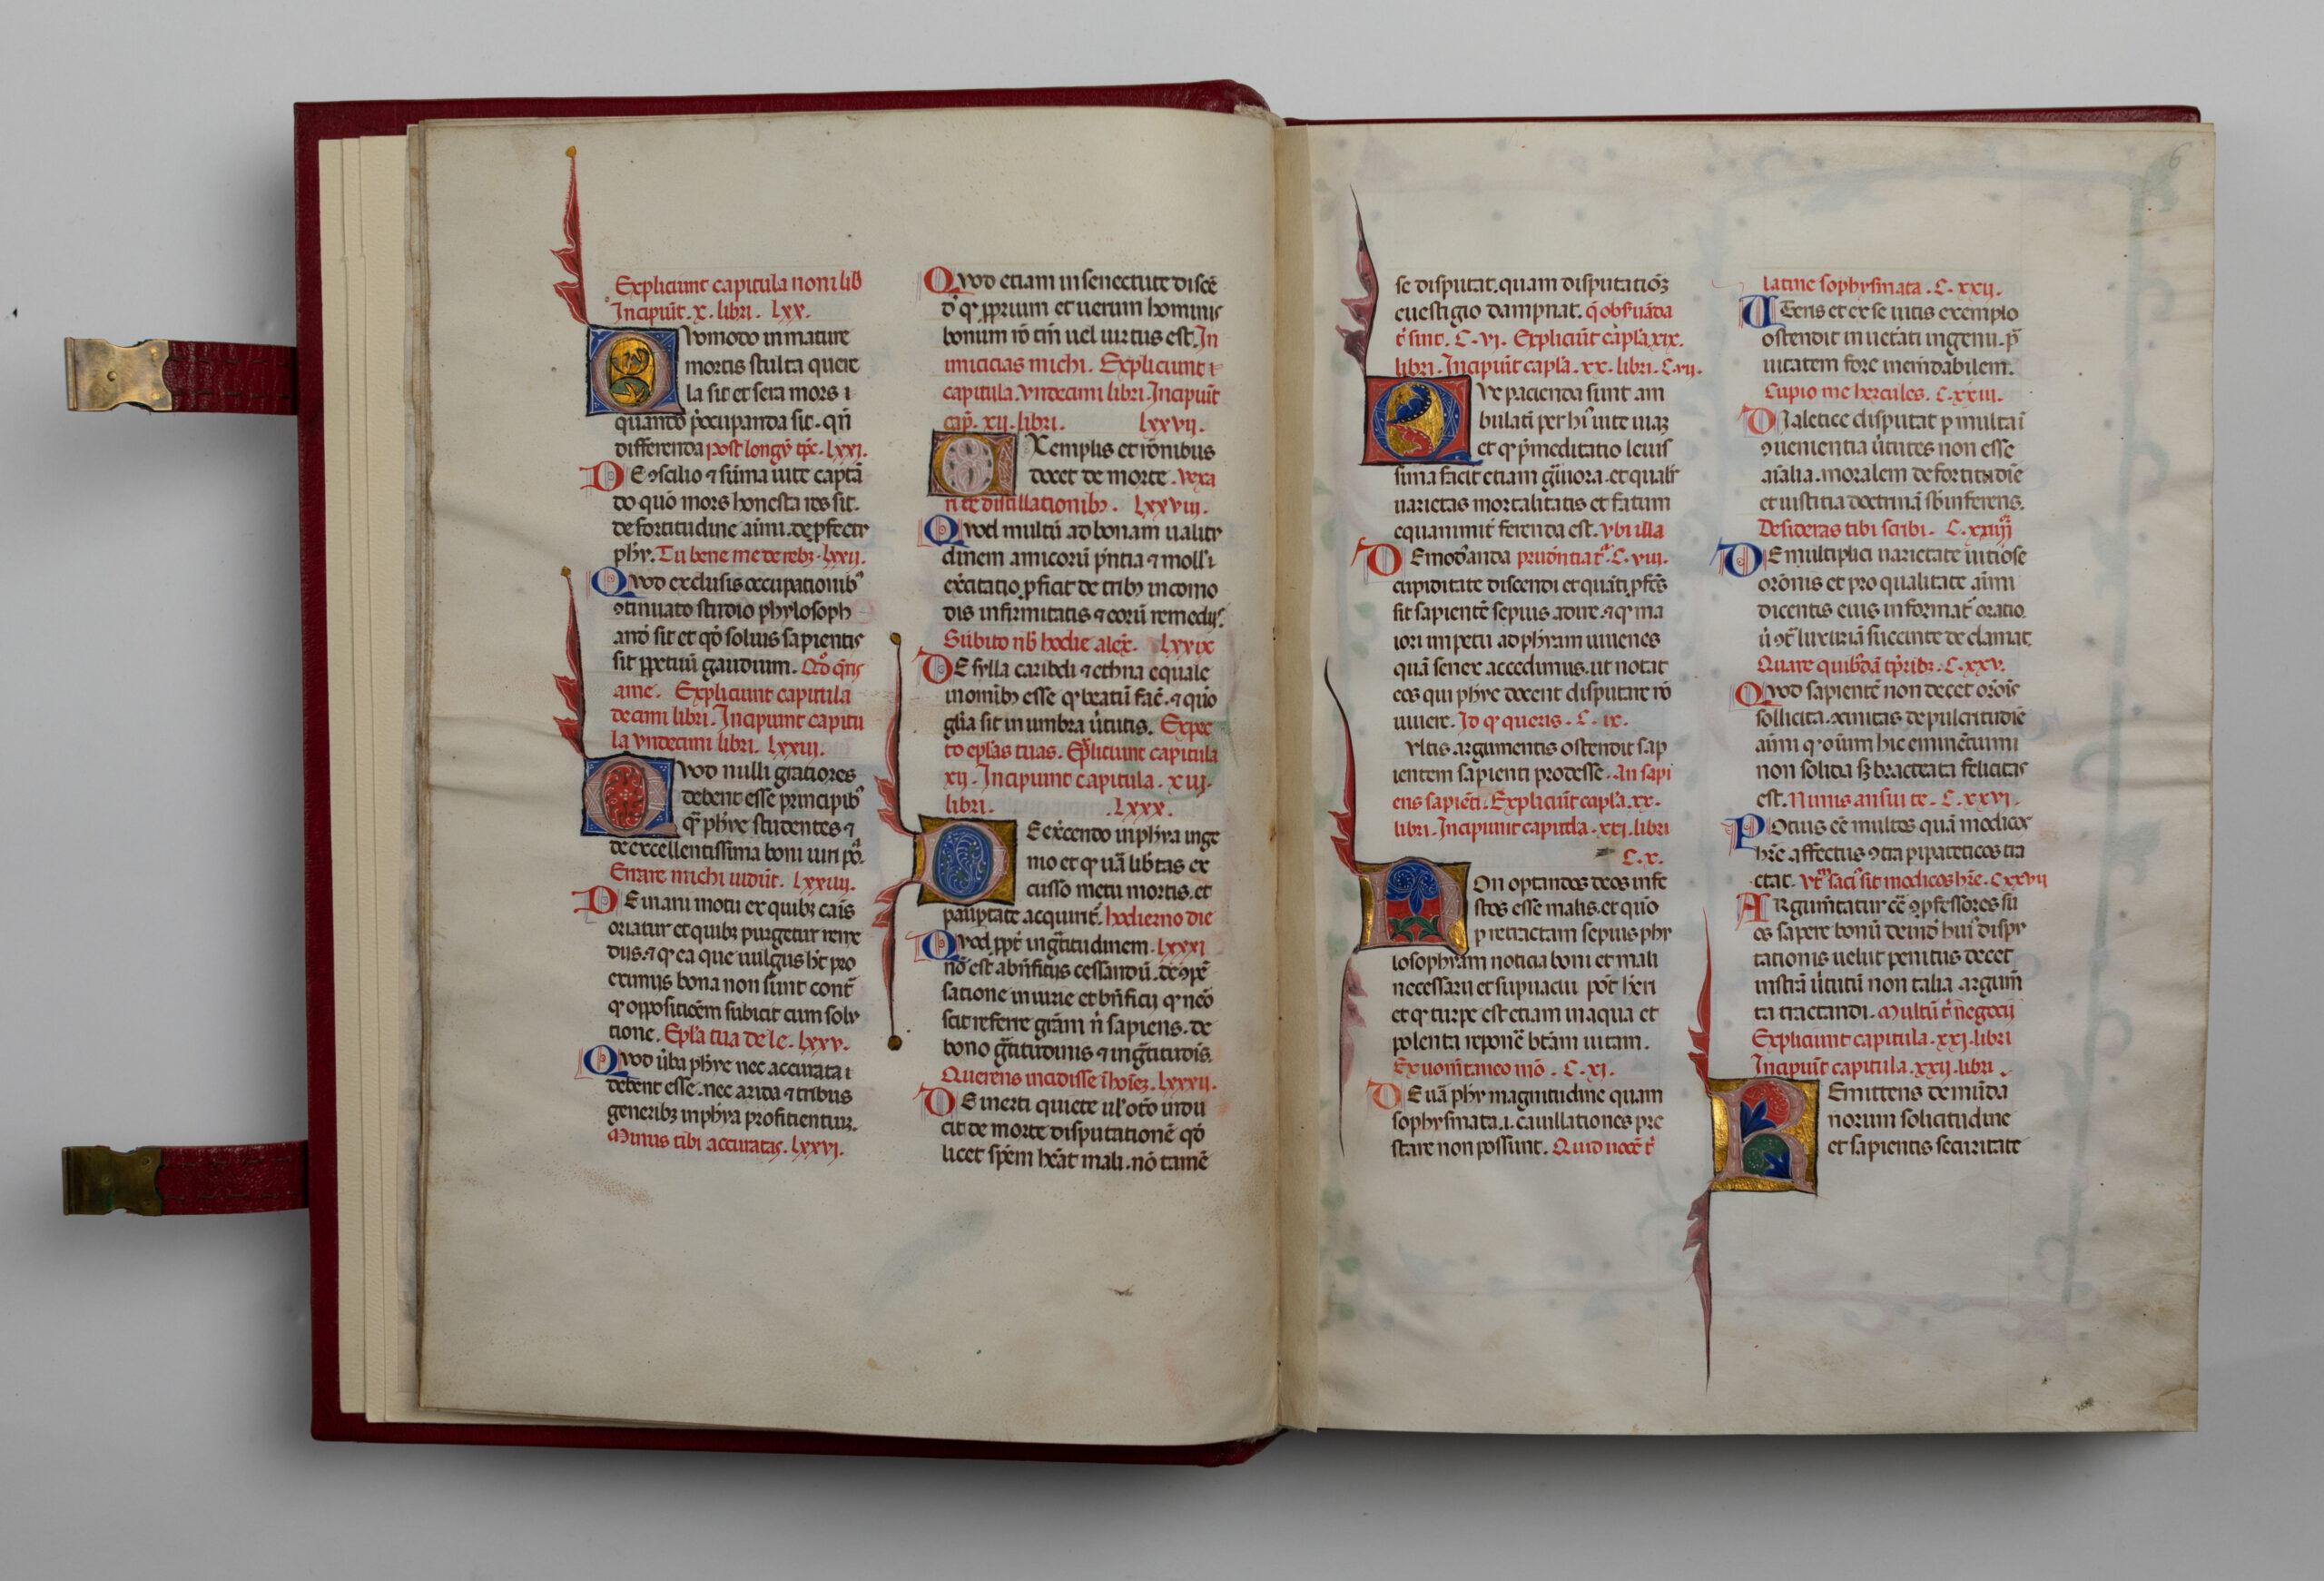 Expliciunt capitula noni lib
Incipiūt . x . libri . lxx.
Vomodo inmature
mortis stulta quere
la sit et sera mors i
quando p̄ocupanda sit . qn̄
differenda post longū tp̄e . lxxi.
DE ɔsilio ⁊ sūma uite captā
do quō mors honesta
de fortitudine aīmi . de pfectr
phr̄. Tu bene me de rebꝫ . lxxii.
Qvod exclusis occupationibꝰ
ɔtinuato studio phylosoph
anđ sit et qđ solius sapientis
sit ꝑpetuū gaudium.
ame. Expliciunt capitula
decimi libri . Incipiunt capitu
la vndecimi libri . lxxiii.
Qvod nulli gratiores
debent esse principibꝰ
qꝫ phye studentes ⁊
de excellentissima boni uiri
Errare michi uidēt . lxxiiii.
DE inani motu ex quibꝫ cāis
oriatur et quibꝫ purgetur reme
diis . ⁊ qꝫ ea que uulgus pro
eximijs bona non sunt cont̄
qꝫ oppositiōem subicit cum solu
tione. Epl̄a tua de le . lxxv.
Qvod ūba phye nec accurata i
debent esse . nec arida ⁊ tribus
generibꝫ in phya profitientiū.
Minus tibi accuratas . lxxvi.
Qvod etiam in senectute discē
đ qꝫ ꝓprium et uerum hominis
bonum rō tm̄ uel uirtus est. In
imicicias michi. Expliciunt
capitula . vndecimi libri . Incipiūt
cap̄. xii . libri. lxxvii.
EXemplis et rōnibus
docet de morte . vexa
ri te distillationibꝫ. lxxviii.
Qvod multū ad bonam ualitu
dinem amicorū pn̄tia ⁊
exc̄itatio ꝓficit de tribꝫ incomo
dis infirmitatis ⁊ eorū remedijs.
Subito nb̄ hodie alex̄. lxxix
DE sylla caribdi ⁊ ethna equale
in omībꝫ esse qꝫ beatū fac̄ . ⁊ quō
glīa sit in umbra ūtutis. Expec
to epl̄as tuas. Expliciunt capitula
xii . Incipiunt capitula . xiii.
libri. lxxx.
DE exc̄endo in phya inge
nio et qꝫ uā lib̄tas ex
cusso metu mortis . et
paup̄tate acquirit̄. hodierno die
Qvod ꝓpt̄ ingr̄titudinem . lxxxi
nō est ab n̄ficijs cessandū . de ɔpē
satione iniurie et bn̄ficij qꝫ nēo
scit referre grām n̄ sapiens . de
bono gr̄titudinis ⁊ ingr̄titudīs.
Querens incidisse . lxxxii.
DE inerti quiete ul̄ otō
cit de morte disputationē qđ
licet spēm hēat mali . nō tamē
6
se disputat . quam disputatiōꝫ
euestigio dampnat. q̄ obs̄uāda
t̄ sint. C. vi. Expliciūt capl̄a xix.
libri . Incipiūt capl̄a . xx . libri . C. vii.
QVe pacienda sunt am
bulāti per hī uite uiaꝫ
et qꝫ p̄meditatio leuis
sima facit etiam gr̄uiora . et qualr̄
uarietas mortalitatis et fatum
equanimit̄ ferenda est. Vbi illa
DE mođanda prudn̄tia t̄ . C. viii.
cupiditate discendi et quāti ꝓfc̄s
sit sapientē sepius adire . ⁊ qꝫ ma
iori impetu ad phyam iuuenes
quā senex accedimus . ut notat
eos qui phye docent disputare nō
uiuere. Id qꝫ queris . C. ix.
vltis argumentis ostendit sap
ientem sapienti prodesse . An sapi
ens sapiēti. Expliciūt capl̄a . xx.
libri . Incipiunt capitula . xxi . libri
C. x.
NOn optandos deos infe
stos esse malis . et quō
p retractam sepius phy
losophyam noticia boni et mali
necessarij et supuacui pōt heri
et qꝫ turpe est etiam in aqua et
polenta reponē btām uitam.
Ex uom̄t meo mō . C. xi.
DE uā phy magnitudine quam
sophysmata . i . cauillationes pre
stare non possunt. Quid nocē t̄
latine sophysmata . C. xxii.
Tens et ex se uitis exemplo
ostendit in uetāti ingenii . p̄
uitatem fore mendabilem.
Cupio me hercules. C. xxiii.
DIaletice disputat p multa ī
ɔuenientia ūtutes non esse
aīalia . moralem de fortitudīe
et iustitia doctrinā sb̄inferens.
Desideras tibi scribi . C. xxiiij
DE multiplici uarietate uitiose
orōnis et pro qualitate aīmi
dicentis eius informat̄ oratio.
ū ɔt̄ luxuriā succincte declamat.
Quare quibđā tp̄ribꝫ . C. xxv.
Qvod sapientē non decet orōis
sollicita . de pulcritudīe
aīmi qꝫ oīum hic eminētium
non solida sꝫ bracteata felicitas
est. Nimis ansuite . C. xxvi.
Potius eē multos quā modicos
hr̄e affectus ɔtra pipateticos tra
ctat . vt̄m saci sit modicos hr̄e . Cxxvii
ARgum̄tatur cē ɔpfessores su
os sapere bonū deinđ hui dispu
tationis uelut penitus decet
nostrā ūtutū non talia argum̄
ta tractandi. Multū t̄ negocij
Expliciunt capitula . xxi . libri
Incipiūt capitula . xxii . libri .
REmittens de mūda
norum solicitudine
et sapientis securitate